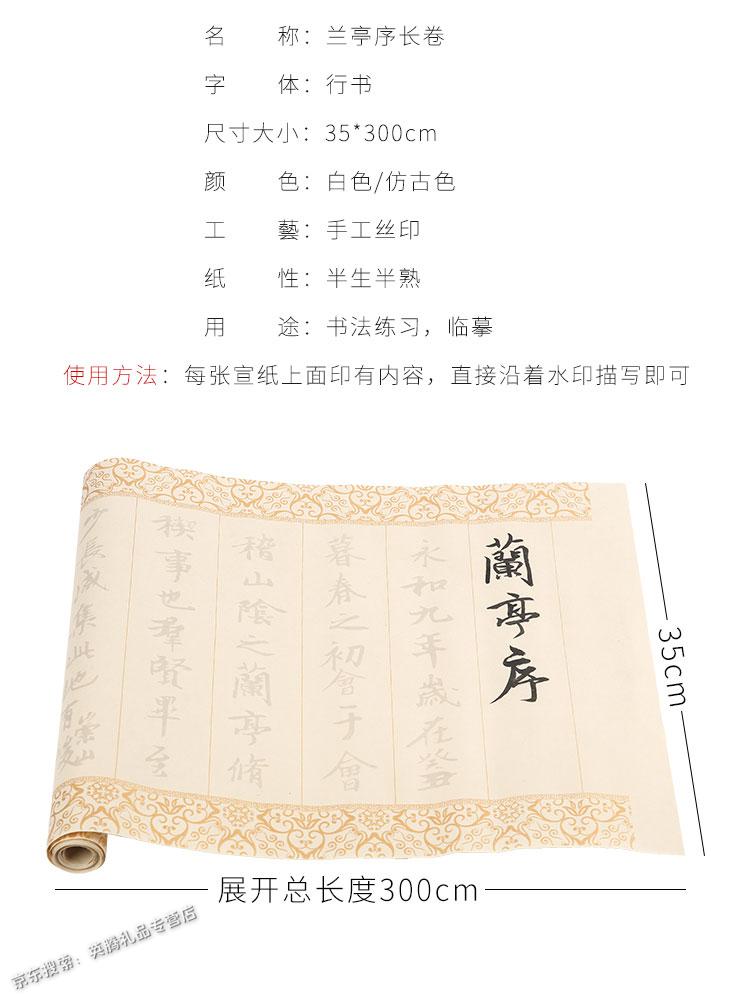 名称：兰亭序长卷
字体：行书
尺寸大小：35*300cm
颜色：白色/仿古色
工藝：手工丝印
纸性：半生半熟
用途：书法练习，临摹
使用方法：每张宣纸上面印有内容，直接沿着水印描写即可
蘭亭序
永和九年歲在癸丑
暮春之初會于會
稽山陰之蘭亭脩
禊事也羣賢畢至
少長咸集此地有崇山
35cm
展开总长度300cm
京东搜索：英腾礼品专营店